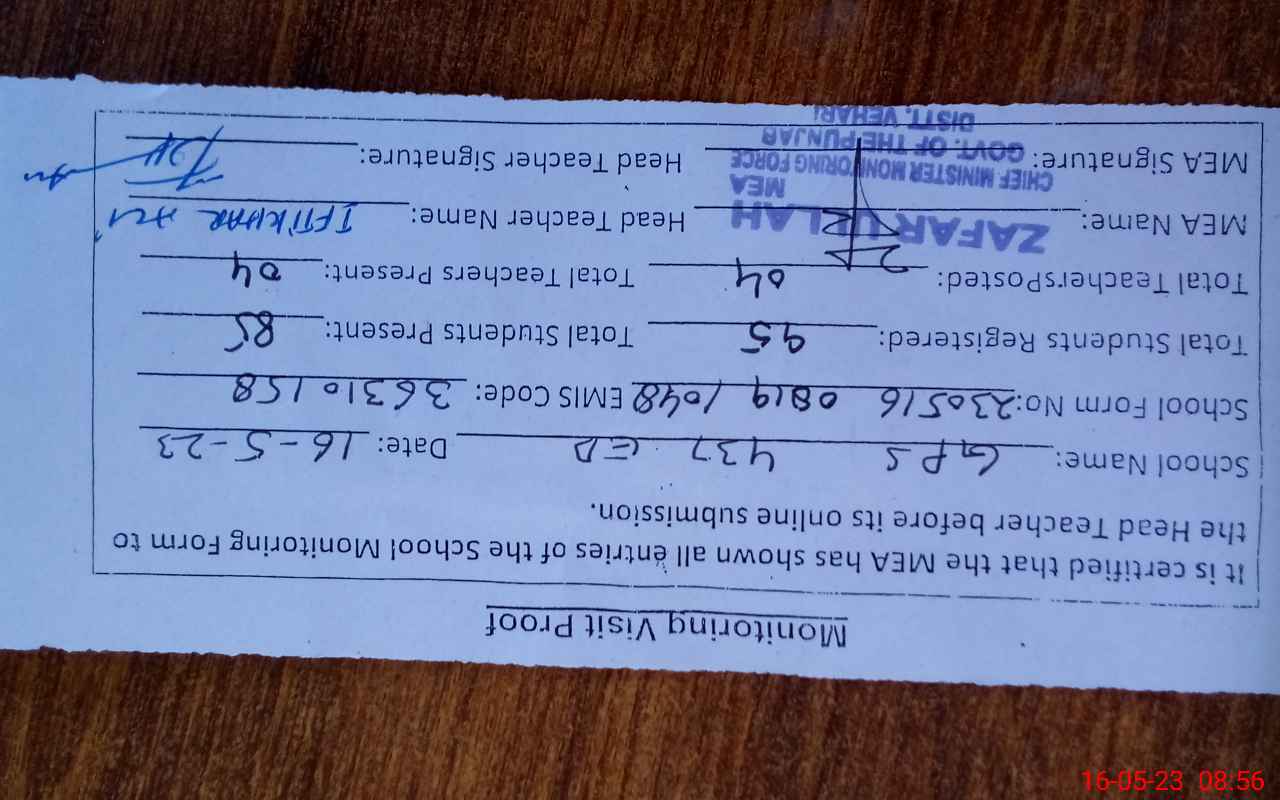 Monitoring Visit Proof
It is certified that the MEA has shown all entries of the School Monitoring Form to
the Head Teacher before its online submission.
School Name: GPS 437 EB Date: 16-5-23
School Form No: 230516 0819 1048 EMIS Code: 36310158
Total Students Registered: 95 Total Students Present: 85
Total TeachersPosted: 04 Total Teachers Present: 04
MEA Name: ZAFAR ULLAH Head Teacher Name: IFTIKHAR
MEA
CHIEF MINISTER MONITORING FORCE
MEA Signature: GOVT. OF THE PUNJAB Head Teacher Signature:
DISTT. VEHARI
16-05-23 08:56